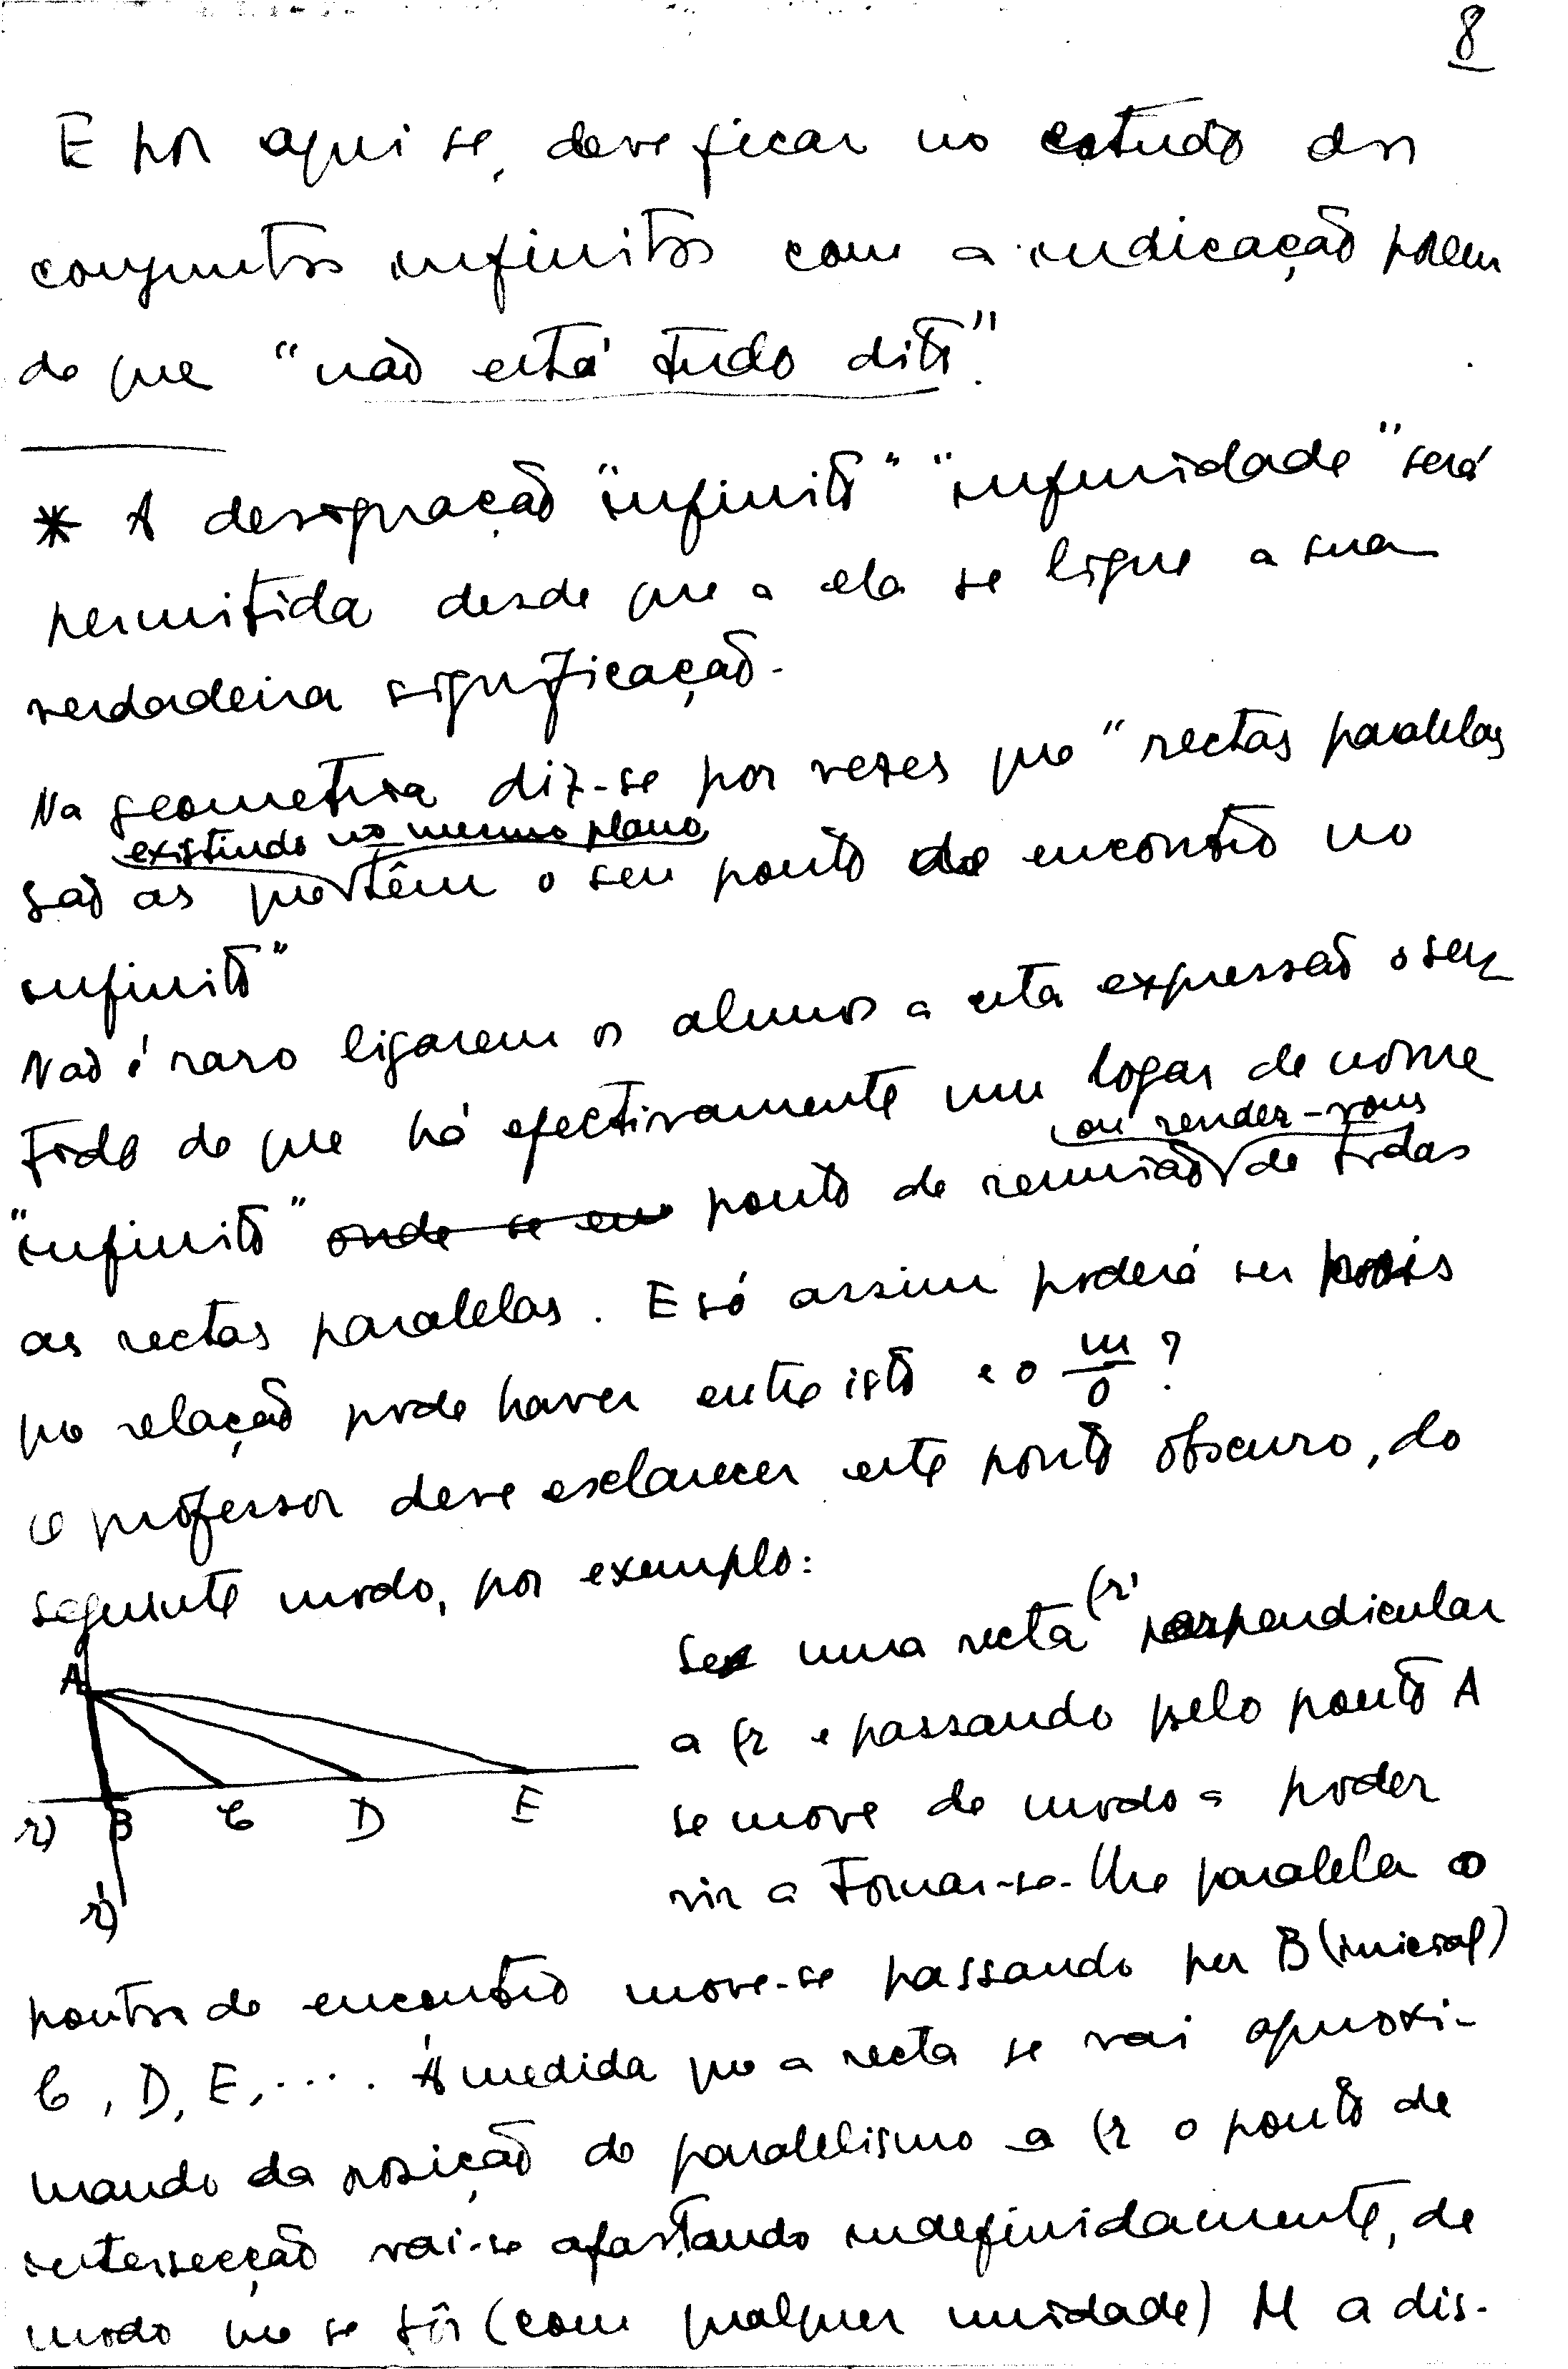 8
E por aqui se deve ficar no estudo dos
conjuntos infinitos com a indicação porem
de que "não está tudo dito".
* A designação "infinito" "infinidade" será
permitida desde que a ela se ligue a sua
verdadeira significação.
Na geometria diz-se por vezes que "rectas paralelas
existindo no mesmo plano
são as que têm o seu ponto de encontro no
infinito"
Não é raro ligarem os alunos a esta expressão o sen
tido de que há efectivamente um logar de nome
ou rendez-vous
"infinito" onde se en ponto de reunião de todas
as rectas paralelas. E só assim poderá ser pois
que relação pode haver entre isto e o m/0 ?
O professor deve esclarecer este ponto obscuro, do
seguinte modo, por exemplo:
Se uma recta (r' perpendicular
a (r e passando pelo ponto A
se move de modo a poder
vir a tornar-se-lhe paralela o
A
B C D E
r)
r')
ponto de encontro move-se passando per B (inicial)
C, D, E, .... Á medida que a recta se vai aproxi-
mando da posição de paralelismo a (r o ponto de
intersecção vai-se afastando indefinidamente, de
modo que se fôr (com qualquer unidade) M a dis-